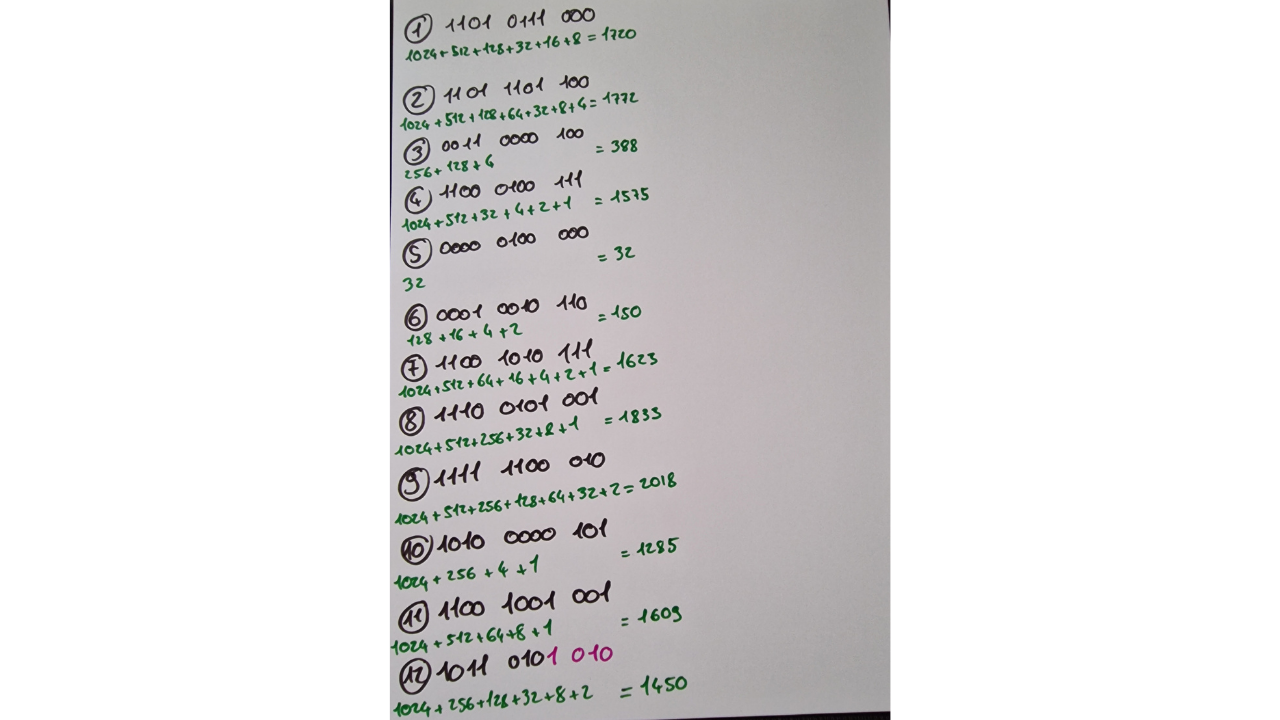 ① 1101 0111 000
1024+512+128+32+16+8=1720
② 1101 1101 100
1024+512+128+64+32+8+4=1772
③ 0011 0000 100
256+128+4 =388
④ 1100 0100 111
1024+512+32+4+2+1 =1575
⑤ 0000 0100 000
32 =32
⑥ 0001 0010 110
128+16+4+2 =150
⑦ 1100 1010 111
1024+512+64+16+4+2+1=1623
⑧ 1110 0101 001
1024+512+256+32+8+1 =1833
⑨ 1111 1100 010
1024+512+256+128+64+32+2=2018
⑩ 1010 0000 101
1024+256+4+1 =1285
⑪ 1100 1001 001
1024+512+64+8+1 =1609
⑫ 1011 0101 010
1024+256+128+32+8+2 =1450